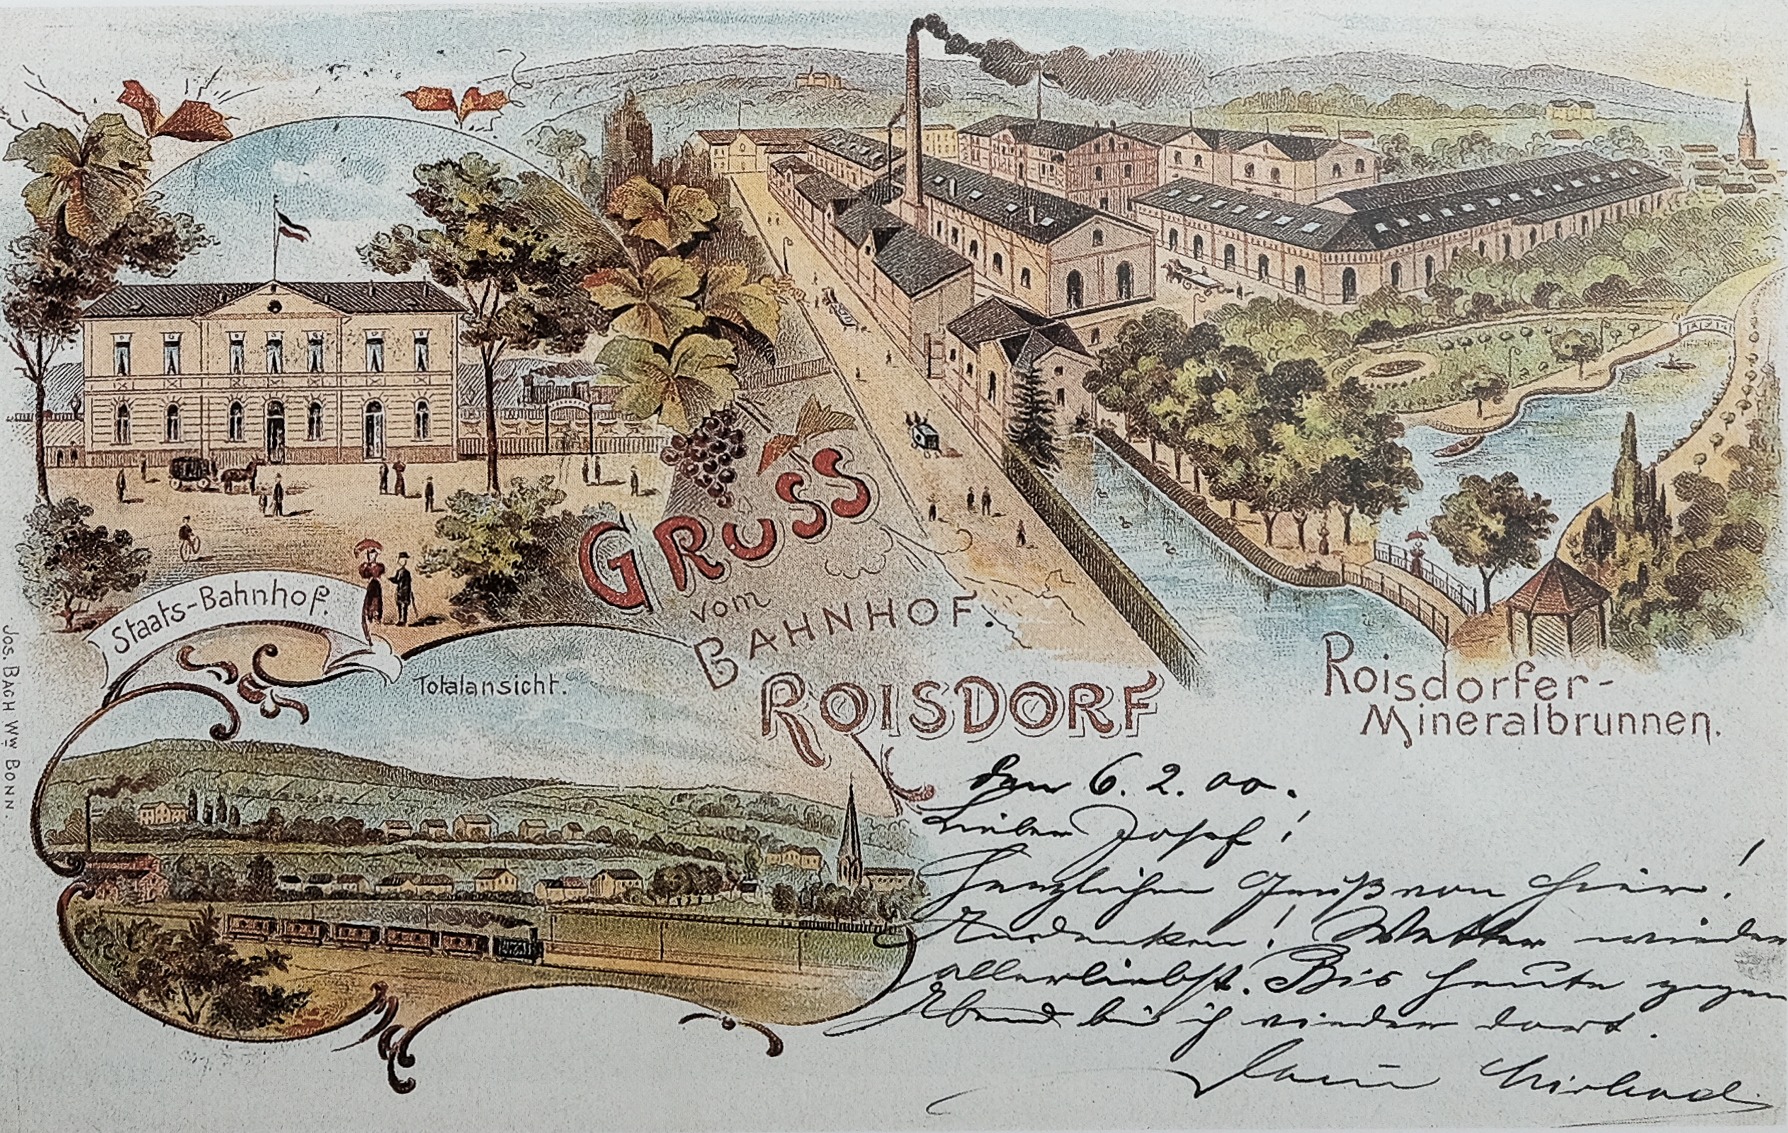 GRUSS
vom
BAHNHOF.
ROISDORF
Staats-Bahnhof.
Totalansicht.
Roisdorfer-
Mineralbrunnen.
Jos. Bach Ww Bonn.
den 6. 2. 00.
Lieber Josef!
Herzlichen Gruß von hier!
Andenken! Wetter wieder
allerliebst. Bis heute gegen
Abend bin ich wieder dort.